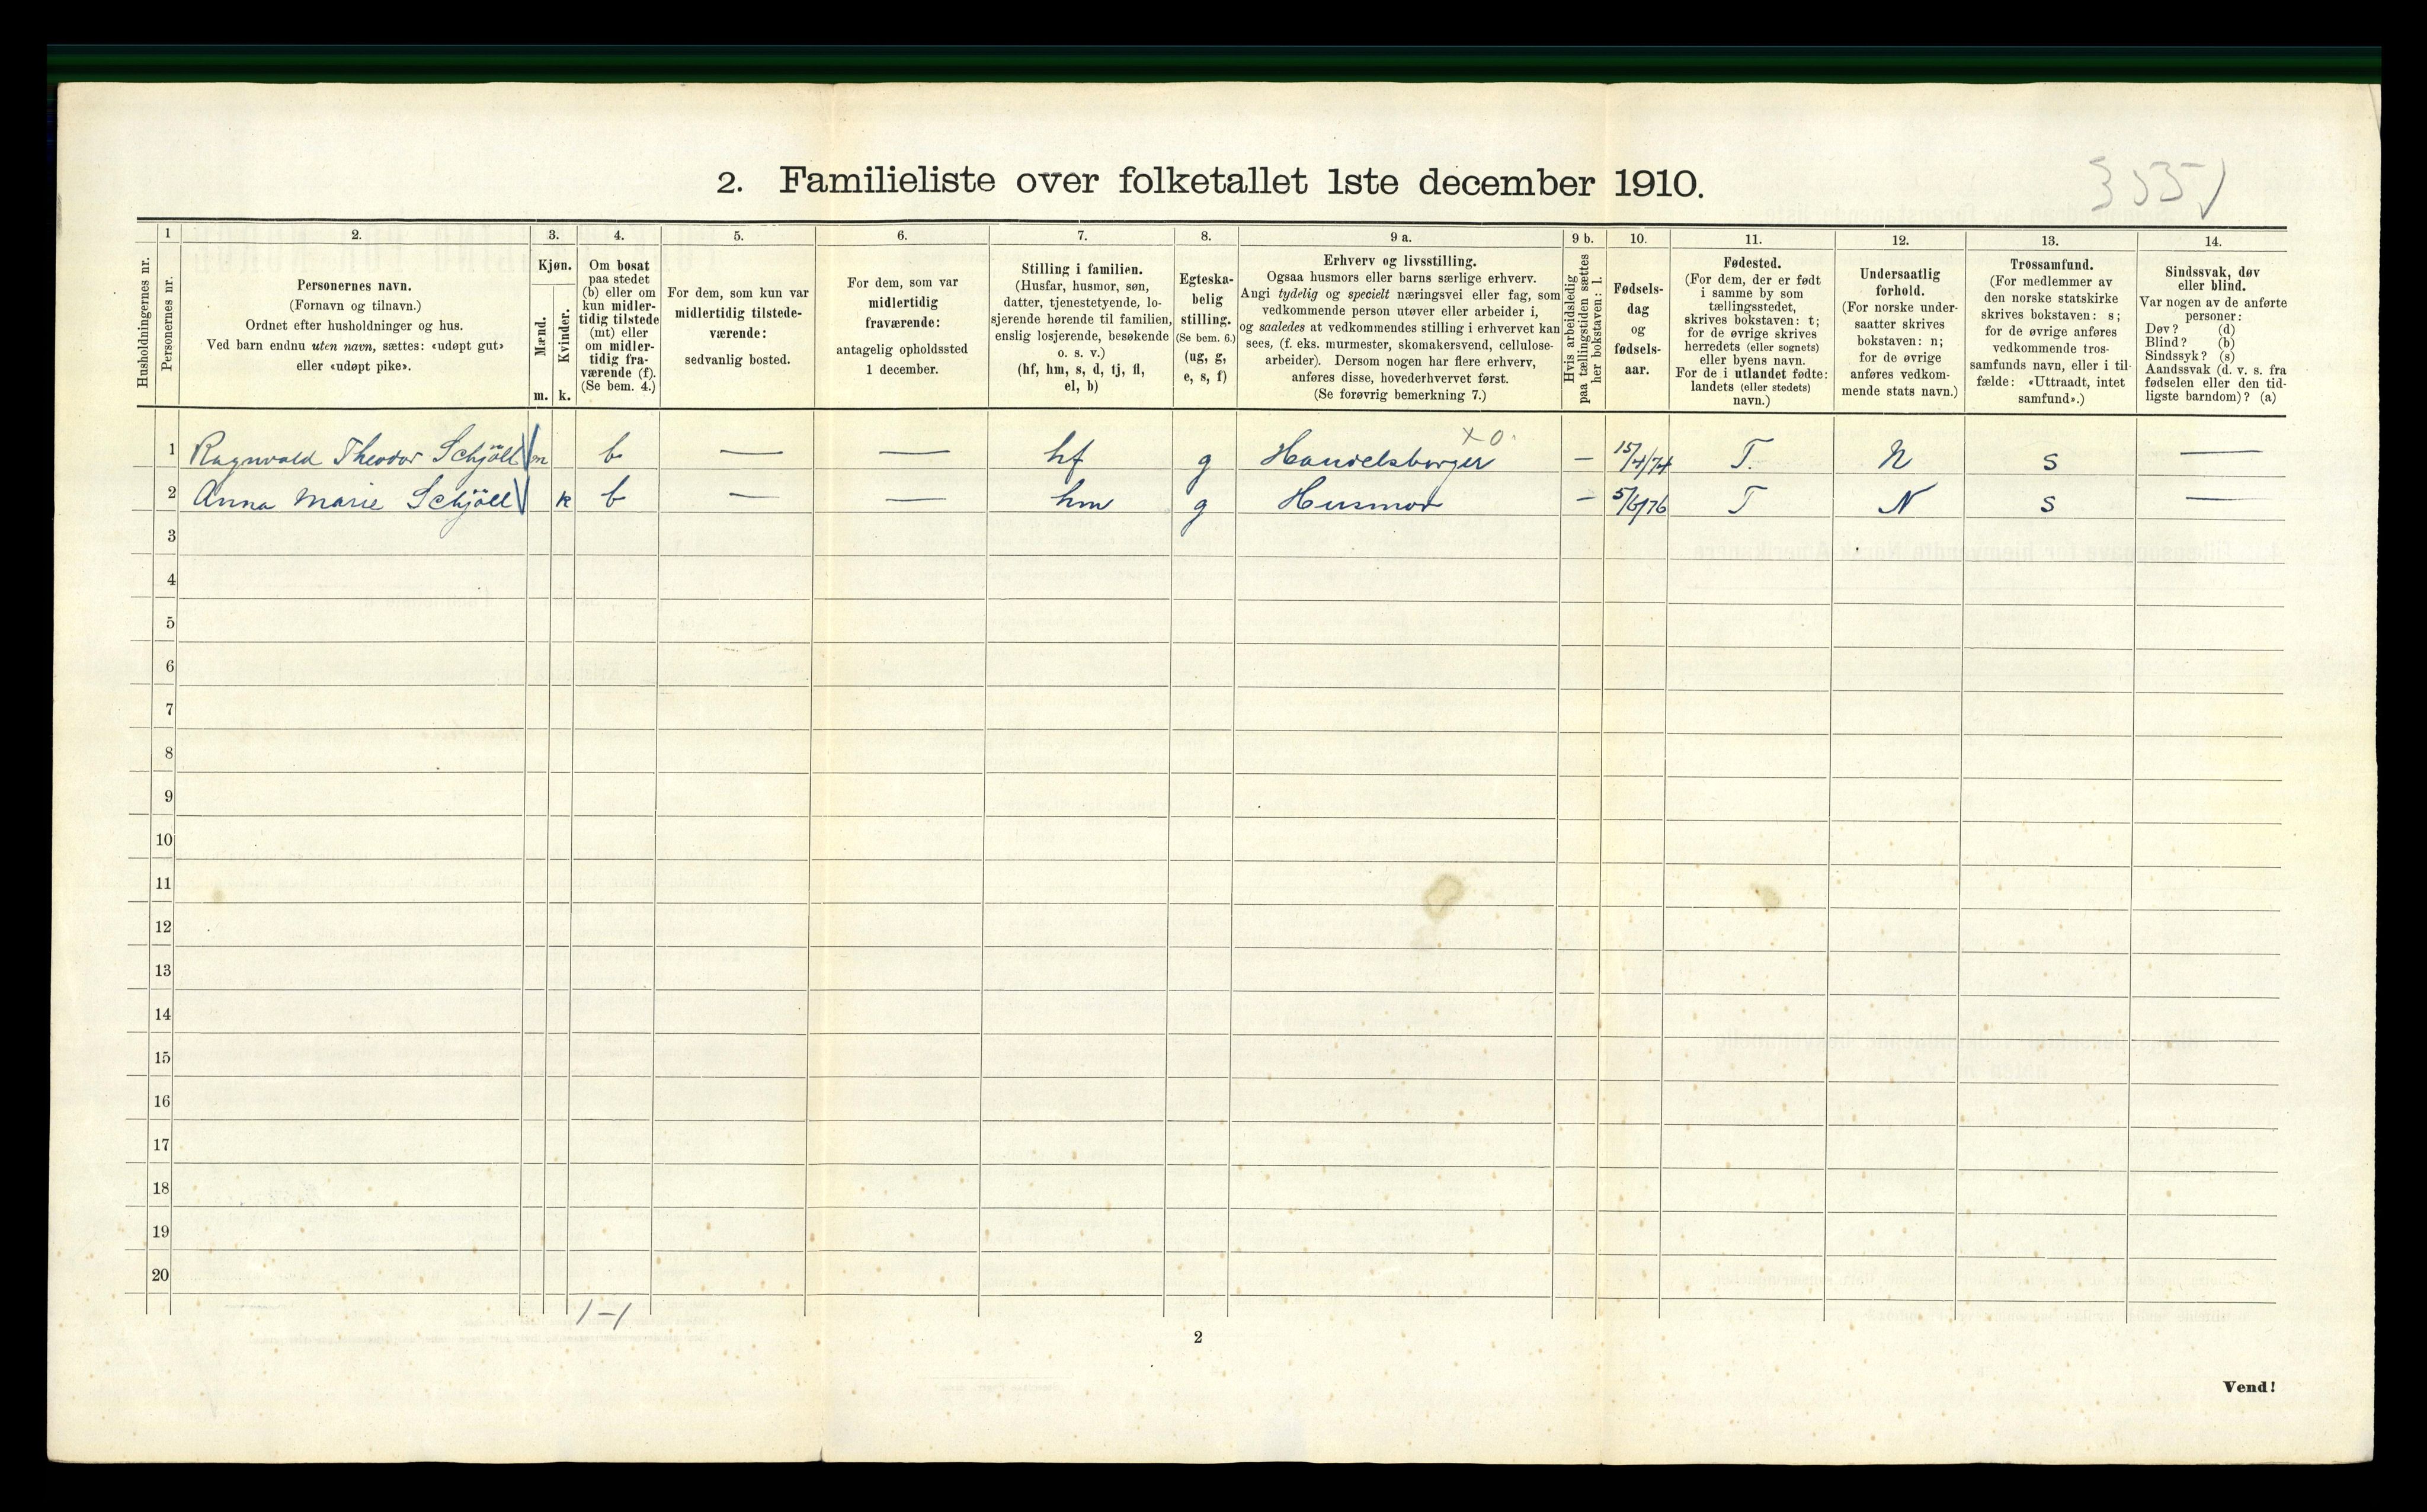 2. Familieliste over folketallet 1ste december 1910.
1 2. 3. 4. 5. 6. 7. 8. 9 a. 9 b. 10. 11. 12. 13. 14.
Husholdningernes nr.
Personernes nr.
Personernes navn.
(Fornavn og tilnavn.)
Ordnet efter husholdninger og hus.
Ved barn endnu uten navn, sættes: «udøpt gut»
eller «udøpt pike».
Kjøn.
Mænd.
Kvinder.
m. k.
Om bosat
paa stedet
(b) eller om
kun midler-
tidig tilstede
(mt) eller
om midler-
tidig fra-
værende (f).
(Se bem. 4.)
For dem, som kun var
midlertidig tilstede-
værende:
sedvanlig bosted.
For dem, som var
midlertidig
fraværende:
antagelig opholdssted
1 december.
Stilling i familien.
(Husfar, husmor, søn,
datter, tjenestetyende, lo-
sjerende hørende til familien,
enslig losjerende, besøkende
o. s. v.)
(hf, hm, s, d, tj, fl,
el, b)
Egteska-
belig
stilling.
(Se bem. 6.)
(ug, g,
e, s, f)
Erhverv og livsstilling.
Ogsaa husmors eller barns særlige erhverv.
Angi tydelig og specielt næringsvei eller fag, som
vedkommende person utøver eller arbeider i,
og saaledes at vedkommendes stilling i erhvervet kan
sees, (f. eks. murmester, skomakersvend, cellulose-
arbeider). Dersom nogen har flere erhverv,
anføres disse, hovederhvervet først.
(Se forøvrig bemerkning 7.)
Hvis arbeidsledig
paa tællingstiden sættes
her bokstaven: l.
Fødsels-
dag
og
fødsels-
aar.
Fødested.
(For dem, der er født
i samme by som
tællingsstedet,
skrives bokstaven: t;
for de øvrige skrives
herredets (eller sognets)
eller byens navn.
For de i utlandet fødte:
landets (eller stedets)
navn.)
Undersaatlig
forhold.
(For norske under-
saatter skrives
bokstaven: n;
for de øvrige
anføres vedkom-
mende stats navn.)
Trossamfund.
(For medlemmer av
den norske statskirke
skrives bokstaven: s;
for de øvrige anføres
vedkommende tros-
samfunds navn, eller i til-
fælde: «Uttraadt, intet
samfund».)
Sindssvak, døv
eller blind.
Var nogen av de anførte
personer:
Døv? (d)
Blind? (b)
Sindssyk? (s)
Aandssvak (d. v. s. fra
fødselen eller den tid-
ligste barndom)? (a)
x 0.
1 Ragnvald Theodor Schjöll m b — — hf g Handelsborger — 15/4/74 T. N s —
2 Anna Marie Schjöll k b — — hm g Husmor — 5/6/76 T N s —
3
4
5
6
7
8
9
10
11
12
13
14
15
16
17
18
19
20
1-1
2
Vend!